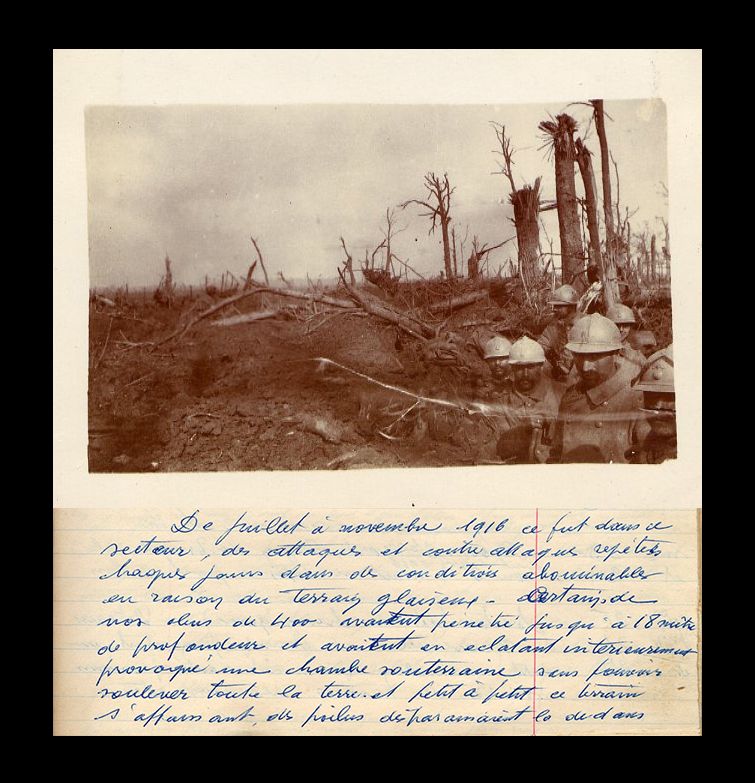 De juillet à novembre 1916 ce fut dans ce
secteur, des attaques et contre attaques repétées
chaques jours dans des conditions abominables
en raison du terrain glaiseux - Certains de
nos obus de 400 avaient penetré jusqu'à 18 mètre
de profondeur et avaient en eclatant interieurement
provoqué une chambre souterraine sans pouvoir
soulever toute la terre et petit à petit ce terrain
s'affaissant, des poilus disparaissaient là dedans